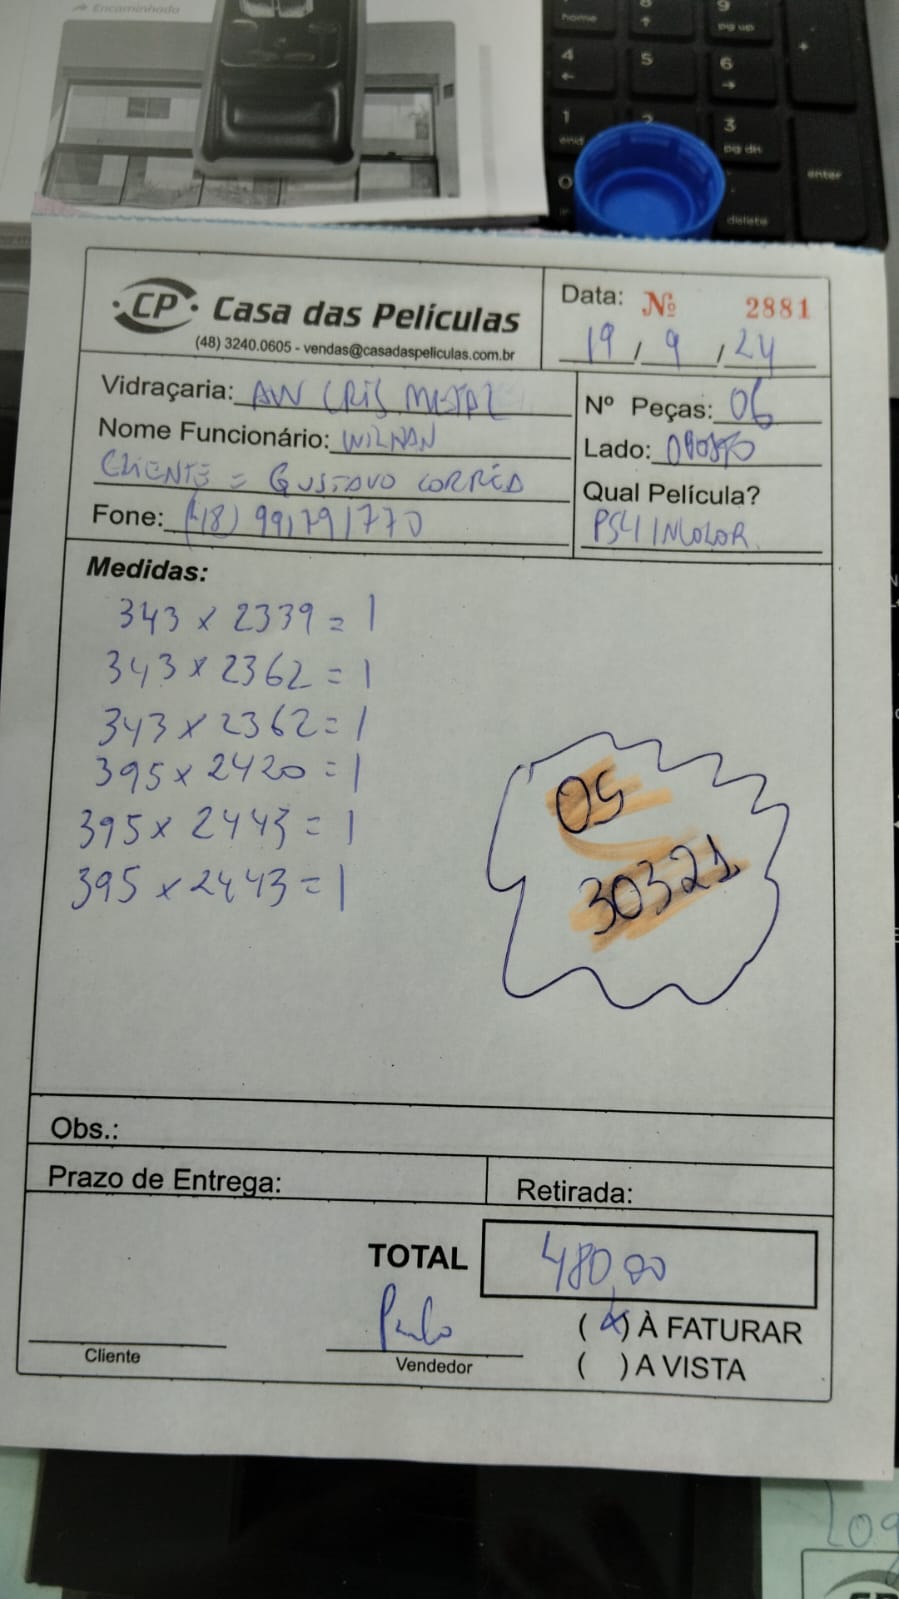 Encaminhada
home
9
pg up
4
5
6
+
1
end
2
3
pg dn
enter
0
delete
CP Casa das Películas
(48) 3240.0605 - vendas@casadaspeliculas.com.br
Data: Nº 2881
19 / 9 / 24
Vidraçaria: AW CRIS METAL
Nome Funcionário: WILNAN
CLIENTE = GUSTAVO CORRÊA
Fone: (48) 991791770
Nº Peças: 06
Lado:
Qual Película?
PS4 INCOLOR.
Medidas:
343 x 2339 = 1
343 x 2362 = 1
343 x 2362 = 1
395 x 2420 = 1
395 x 2443 = 1
395 x 2443 = 1
OS
30321
Obs.:
Prazo de Entrega:
Retirada:
TOTAL 480,00
Paulo
Cliente
Vendedor
(X) À FATURAR
( ) A VISTA
209